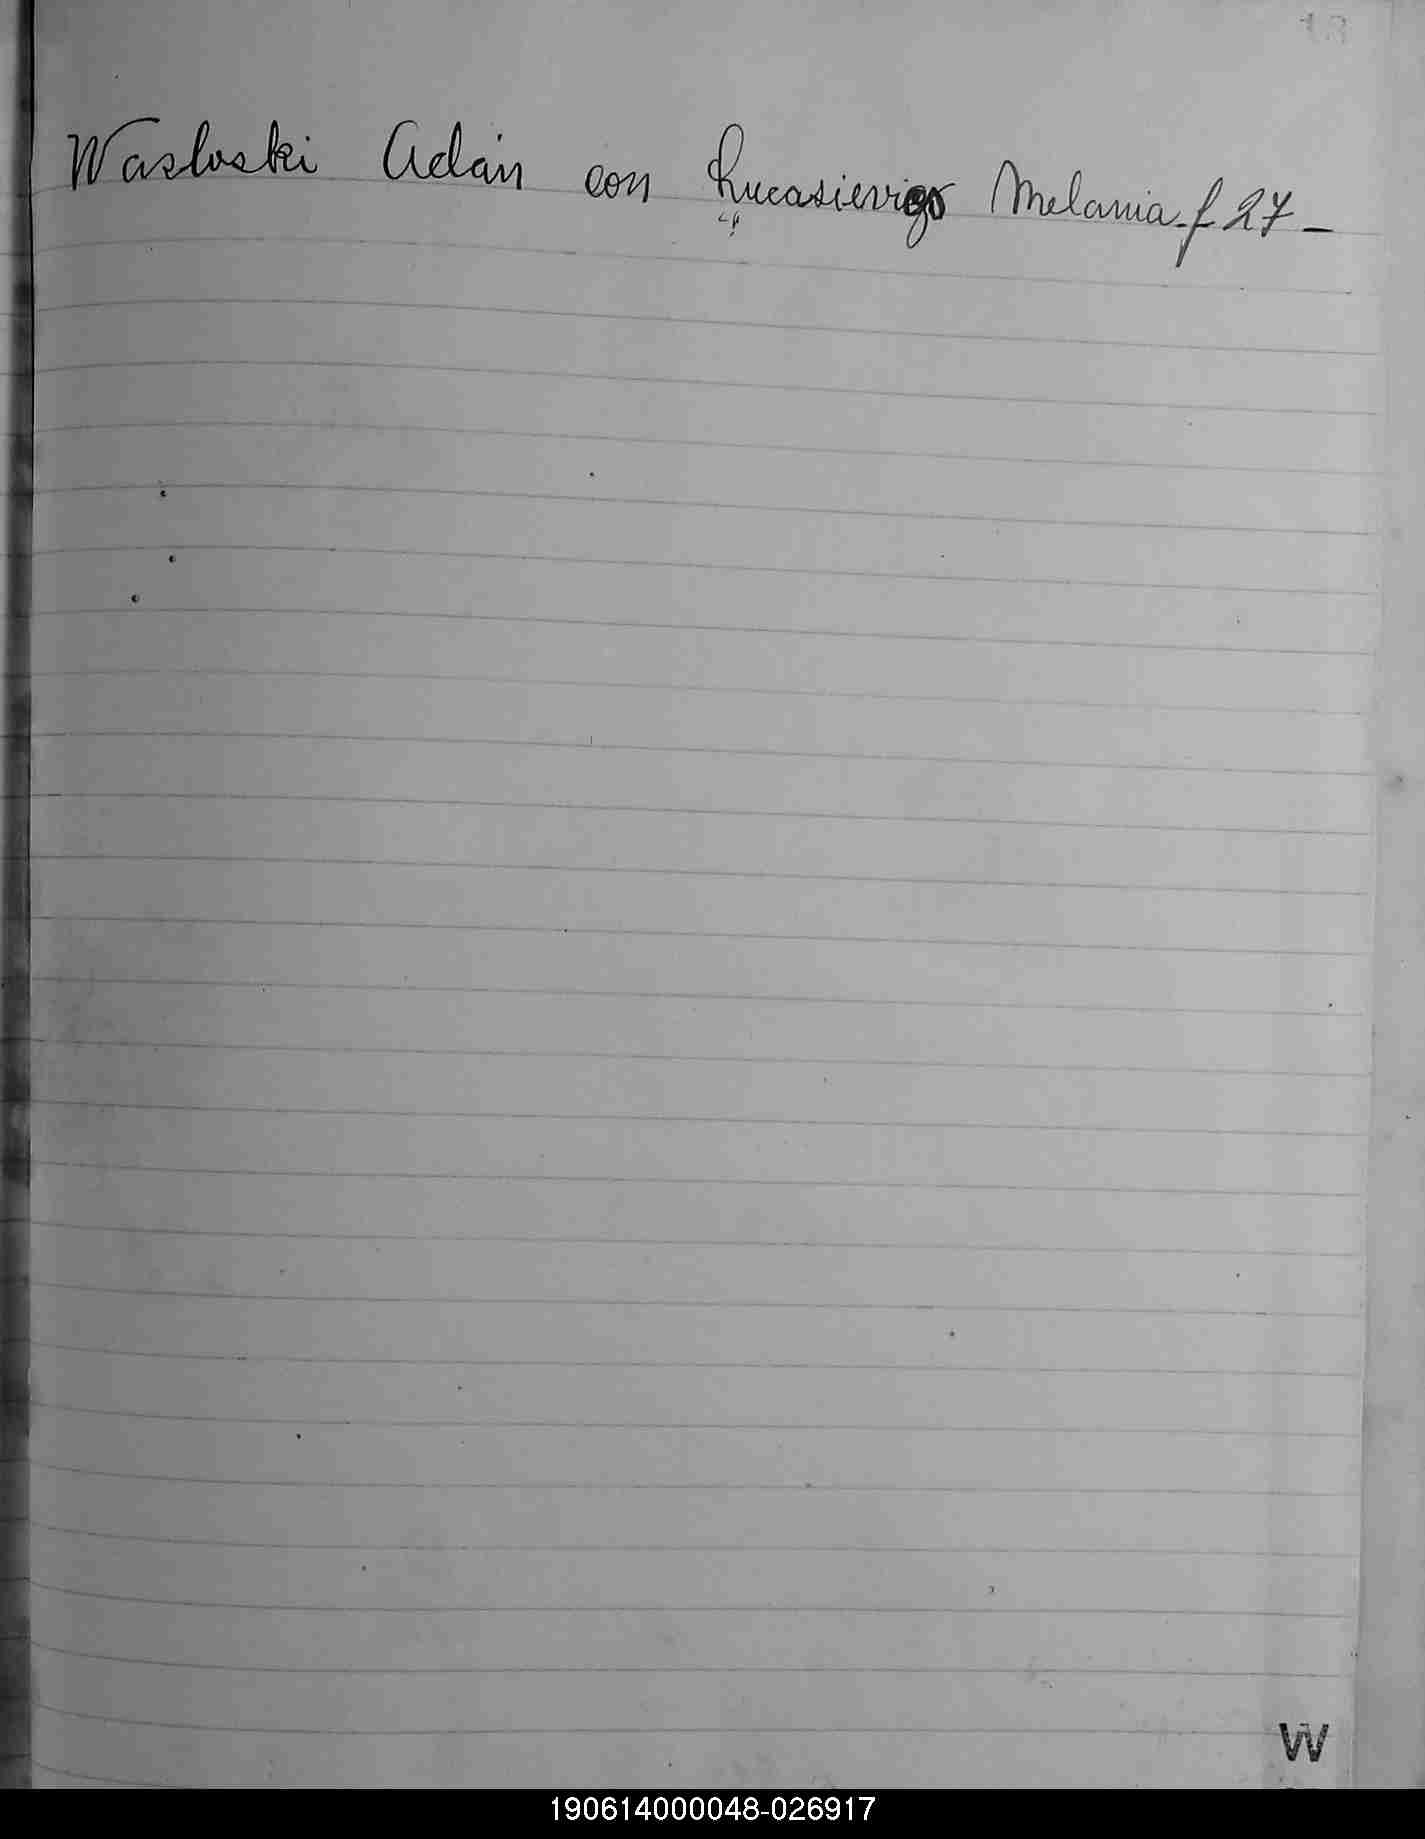 Wasloski Adán con Lucasievigs Melania f 27 –
W
190614000048-026917